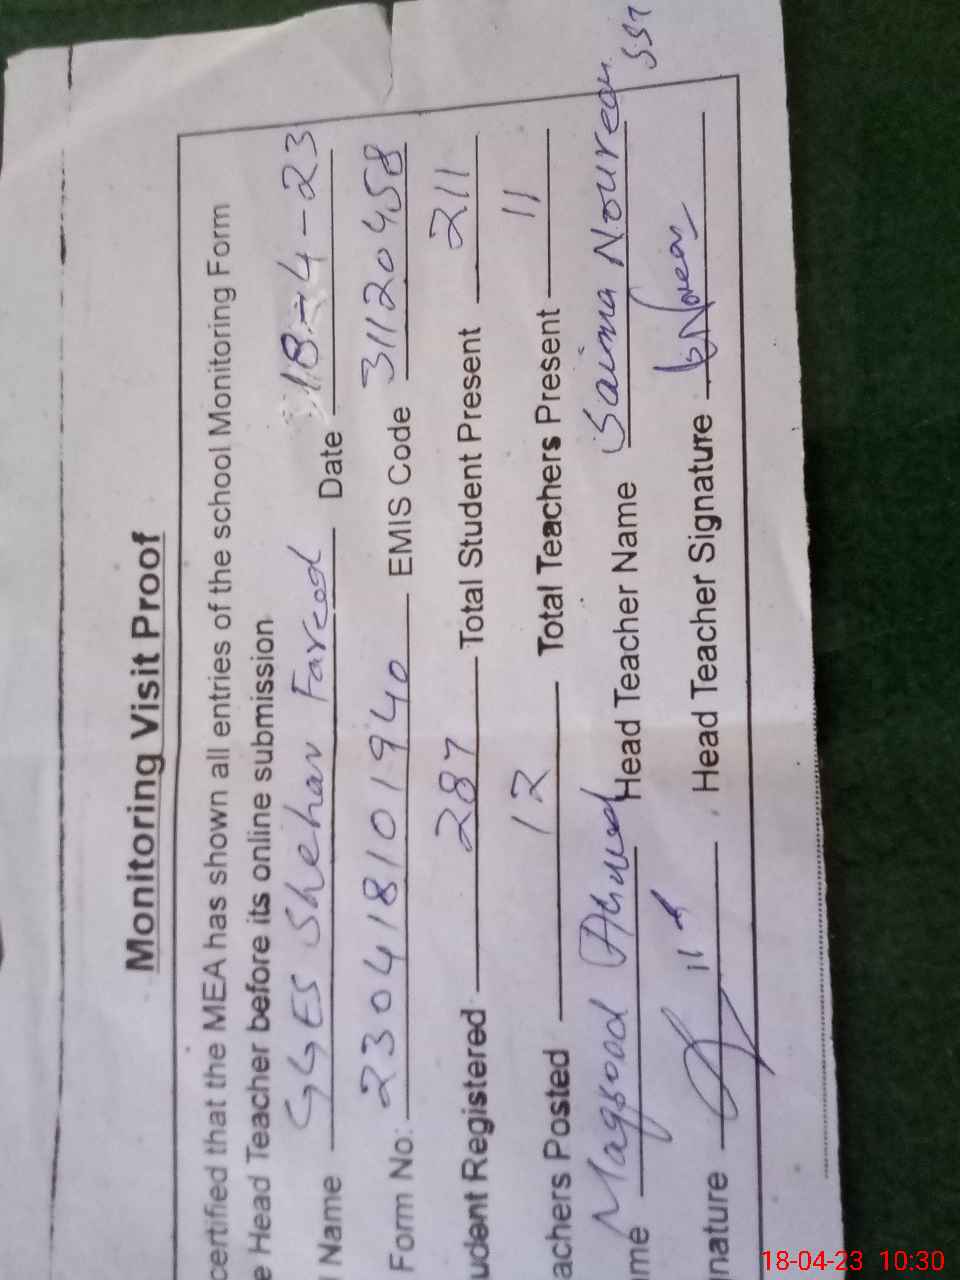 Monitoring Visit Proof
certified that the MEA has shown all entries of the school Monitoring Form
e Head Teacher before its online submission.
l Name GGES Shehar Fareed Date 18-4-23
Form No: 230418101940 EMIS Code 31120458
udent Registered 287 Total Student Present 211
achers Posted 12 Total Teachers Present 11
me Maqsood Ahmed Head Teacher Name Saima Noureen SST
nature Head Teacher Signature Noreen
18-04-23 10:30